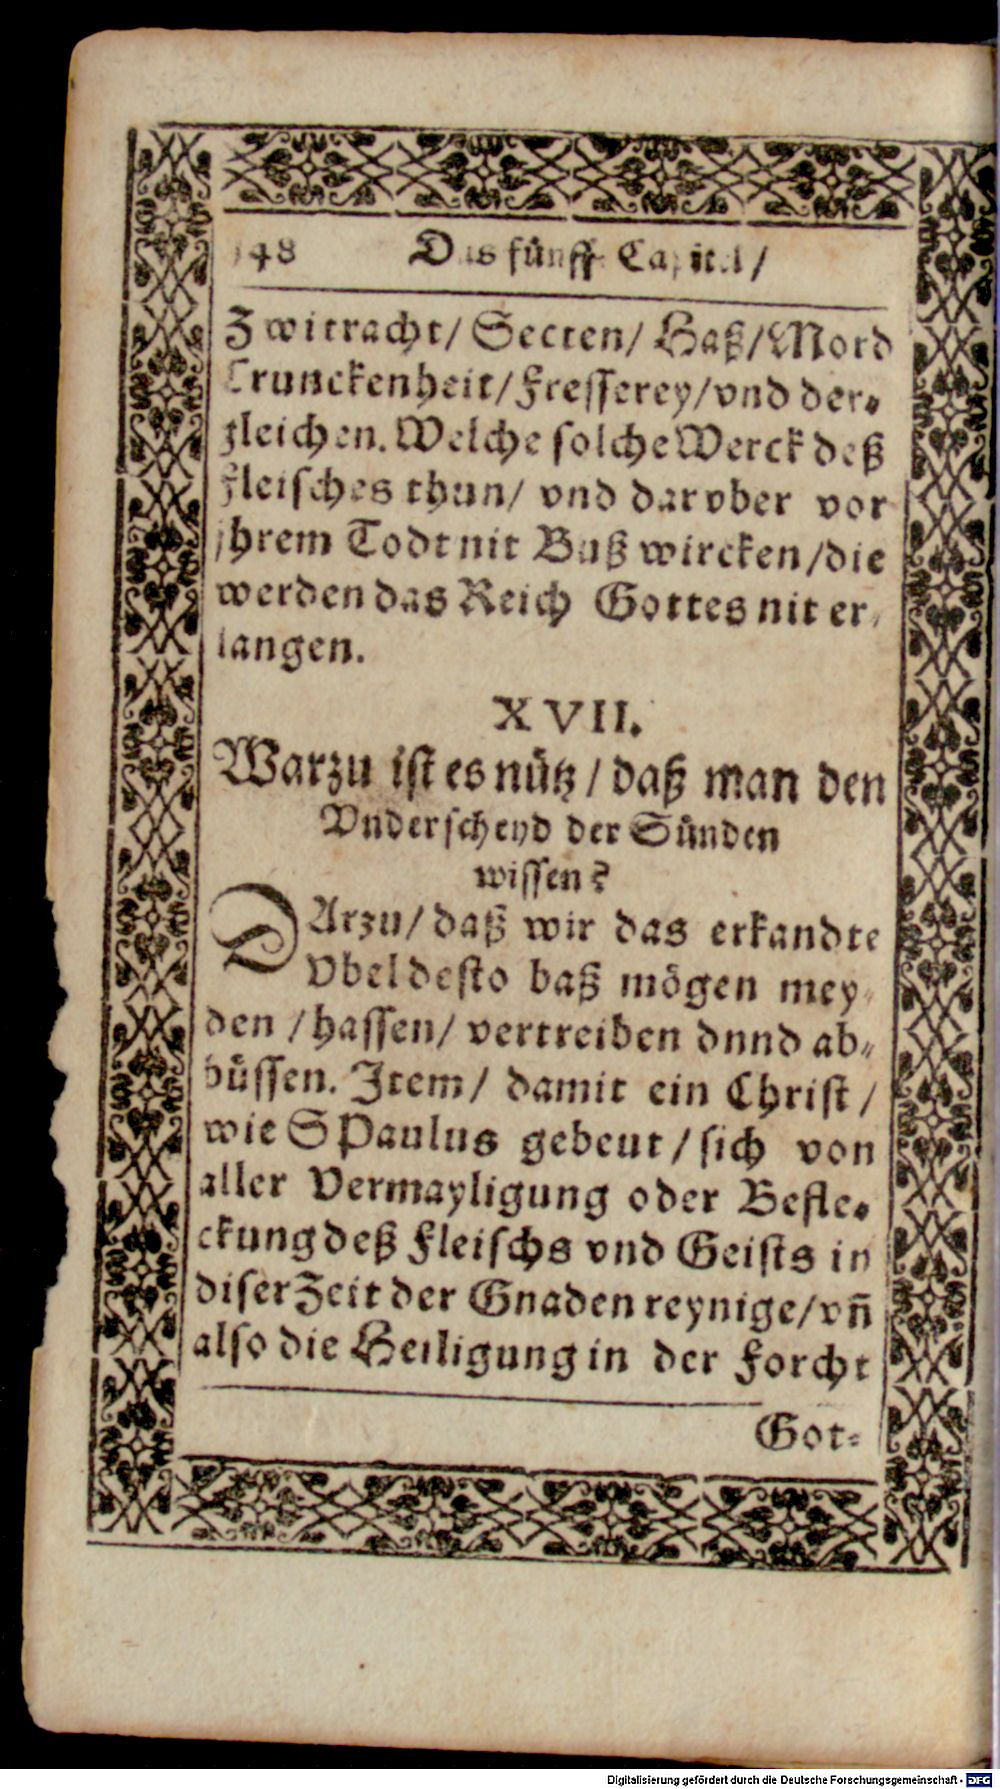 148 Das fünfft Capitel /
Zwitracht / Secten / Haß / Mord
Trunckenheit / Fresserey / vnd der-
gleichen. Welche solche Werck deß
Fleisches thun / vnd darvber vor
jhrem Todt nit Buß wircken / die
werden das Reich Gottes nit er-
langen.
XVII.
Warzu ist es nütz / daß man den
Vnderscheyd der Sünden
wissen?
DArzu / daß wir das erkandte
Vbel desto baß mögen mey-
den / hassen / vertreiben vnnd ab-
büssen. Item / damit ein Christ /
wie S Paulus gebeut / sich von
aller Vermayligung oder Befle-
ckung deß Fleischs vnd Geists in
diser Zeit der Gnaden reynige / vn̄
also die Heiligung in der Forcht
Got-
Digitalisierung gefördert durch die Deutsche Forschungsgemeinschaft - DFG